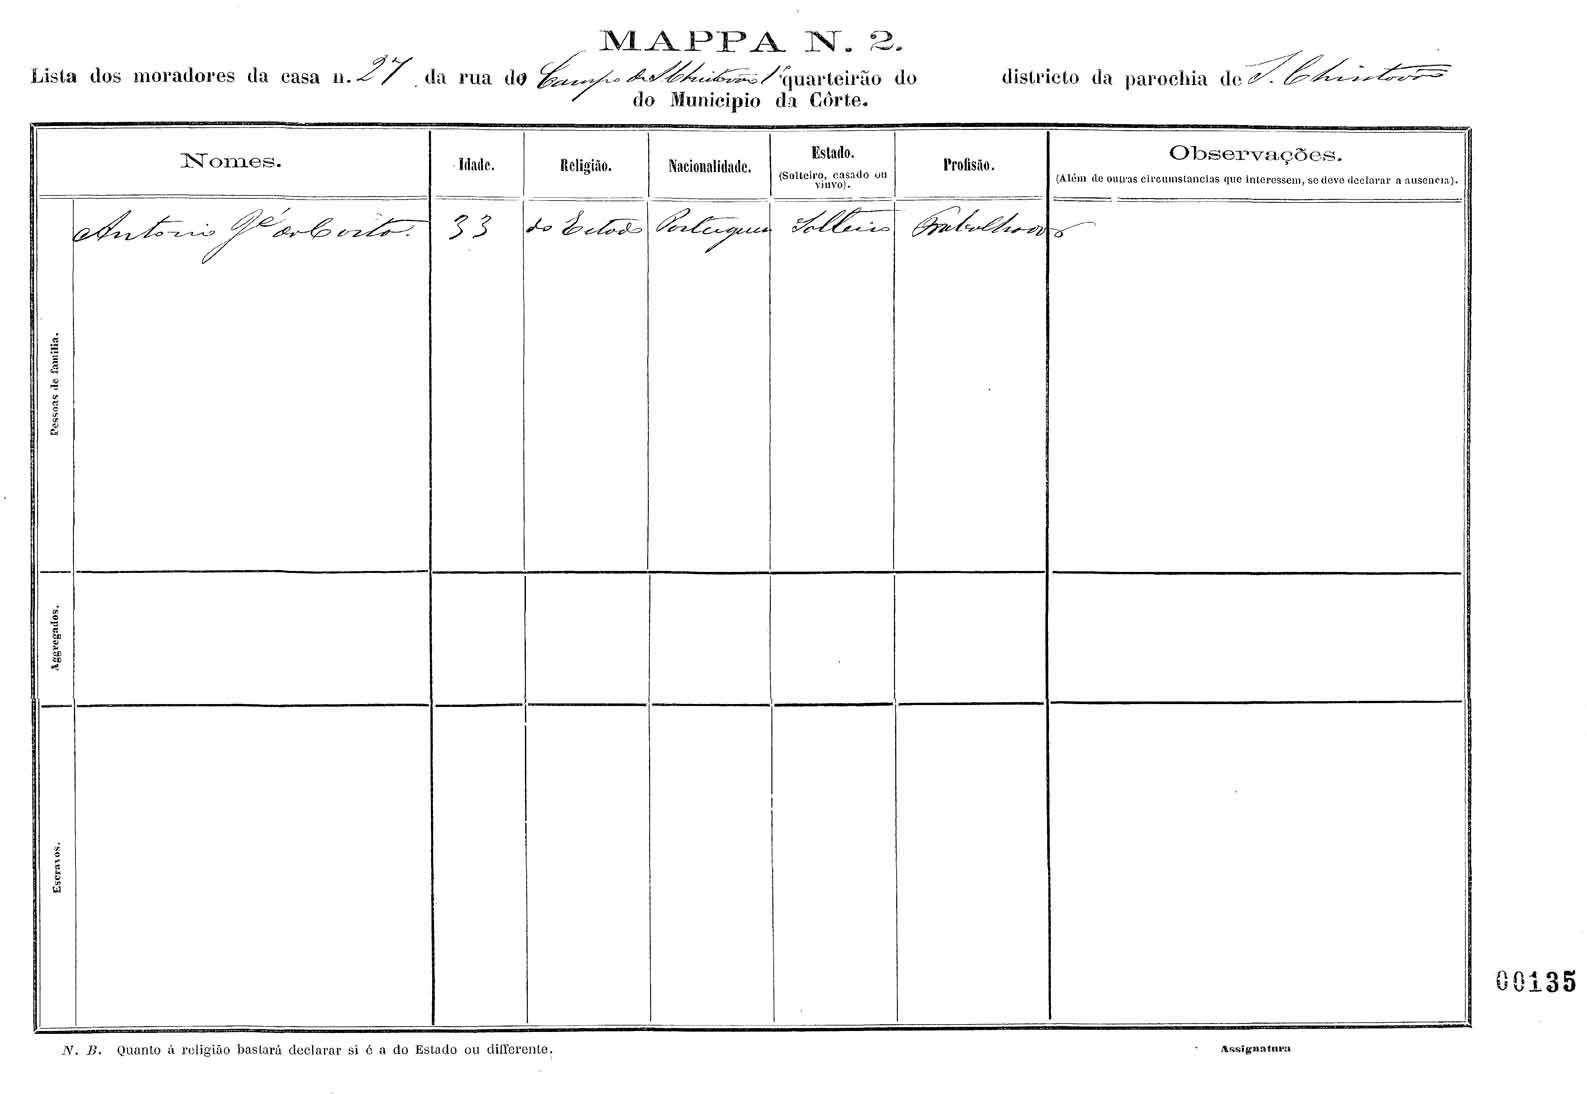 MAPPA N. 2.
Lista dos moradores da casa n. 27 da rua do Campo de S. Christovão 1º quarteirão do districto da parochia de S. Christovão
do Municipio da Côrte.
Nomes. Idade. Religião. Nacionalidade. Estado. (Solteiro, casado ou viuvo). Profisão. Observações. (Além de outras circumstancias que interessem, se deve declarar a ausencia).
Pessoas de familia.
Antonio Jé da Costa. 33 do Estado Portuguez Solteiro Trabalhador
Aggregados.
Escravos.
00135
N. B. Quanto á religião bastará declarar si é a do Estado ou differente.
Assignatura